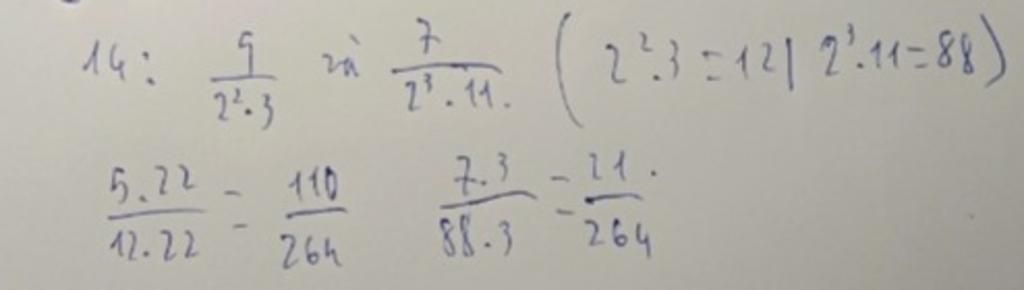 14: 5/2².3 và 7/2³.11. (2².3 = 12 | 2³.11 = 88)
5.22/12.22 = 110/264 7.3/88.3 = 21/264.